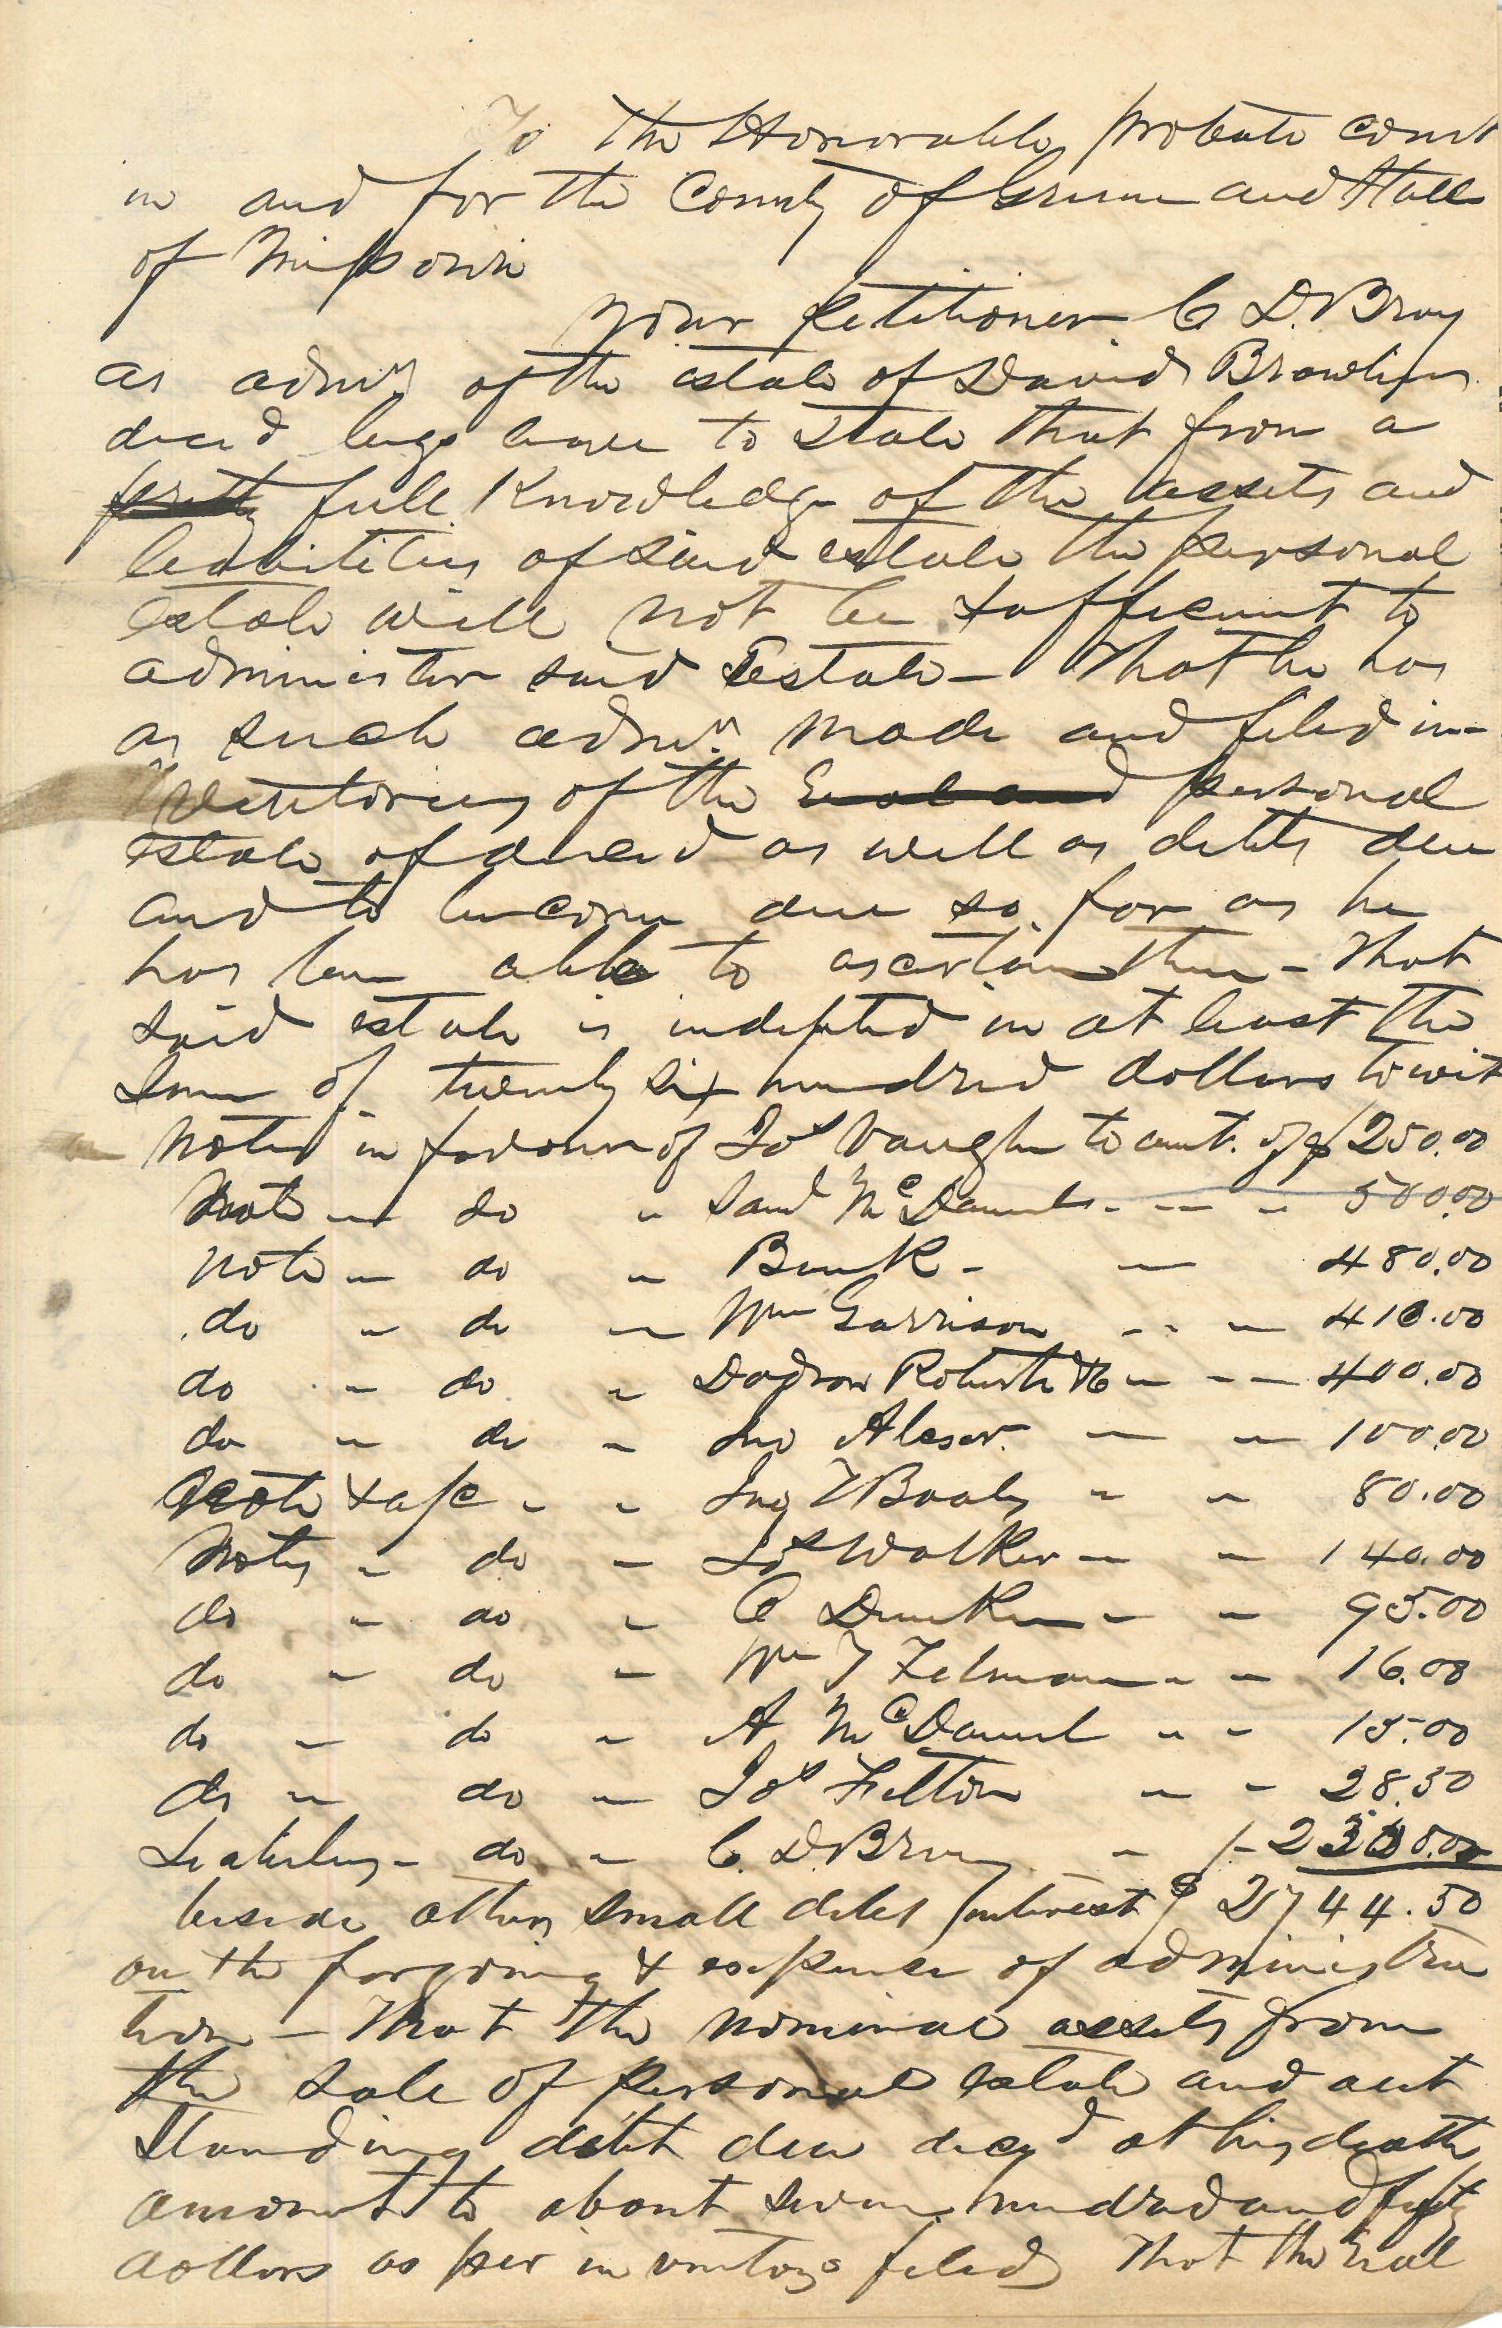 To the Honorable probate court
in and for the County of Greene and State
of Missouri
Your petitioner C D. Bray
as admr of the estate of David
decd begs leave to state that from a
pretty full Knowledge of the assets and
liabilities of said estate the personal
estate will not be sufficient to
administer said Estate – That he has
as such admr. made and filed in-
ventories of the Real and personal
estate of deceasd as well as debts due
and to become due so far as he
has been able to ascertain them – That
said estate is indepted in at least the
sum of twenty six hundred dollars to wit
Notes in favour of Jos Vaughn to amt. of $250.00
Note " do " Saml McDaniels - - - 500.00
Note " do " Bunk - - 480.00
do " do " Wm Garrison - - - 410.00
do " do " Roberts & Co - - - 400.00
do " do " Jno - - 100.00
Note & a/c " " Jno " " 80.00
Notes " do " Jos Walker - - 140.00
do " do " C - - 95.00
do " do " Wm T - - 16.00
do " do " A McDaniel " - 15.00
do " do " Jos Felton - - 28.50
do " C. D. Bray - 230.00
beside others small debts interest $ 2744.50
on the forgoing & expense of administra
tion – That the nominal assets from
the sale of personal estate and out
standing debt due decd at his death
amount to about seven hundred and fifty
dollars as per inventorys filed That the real